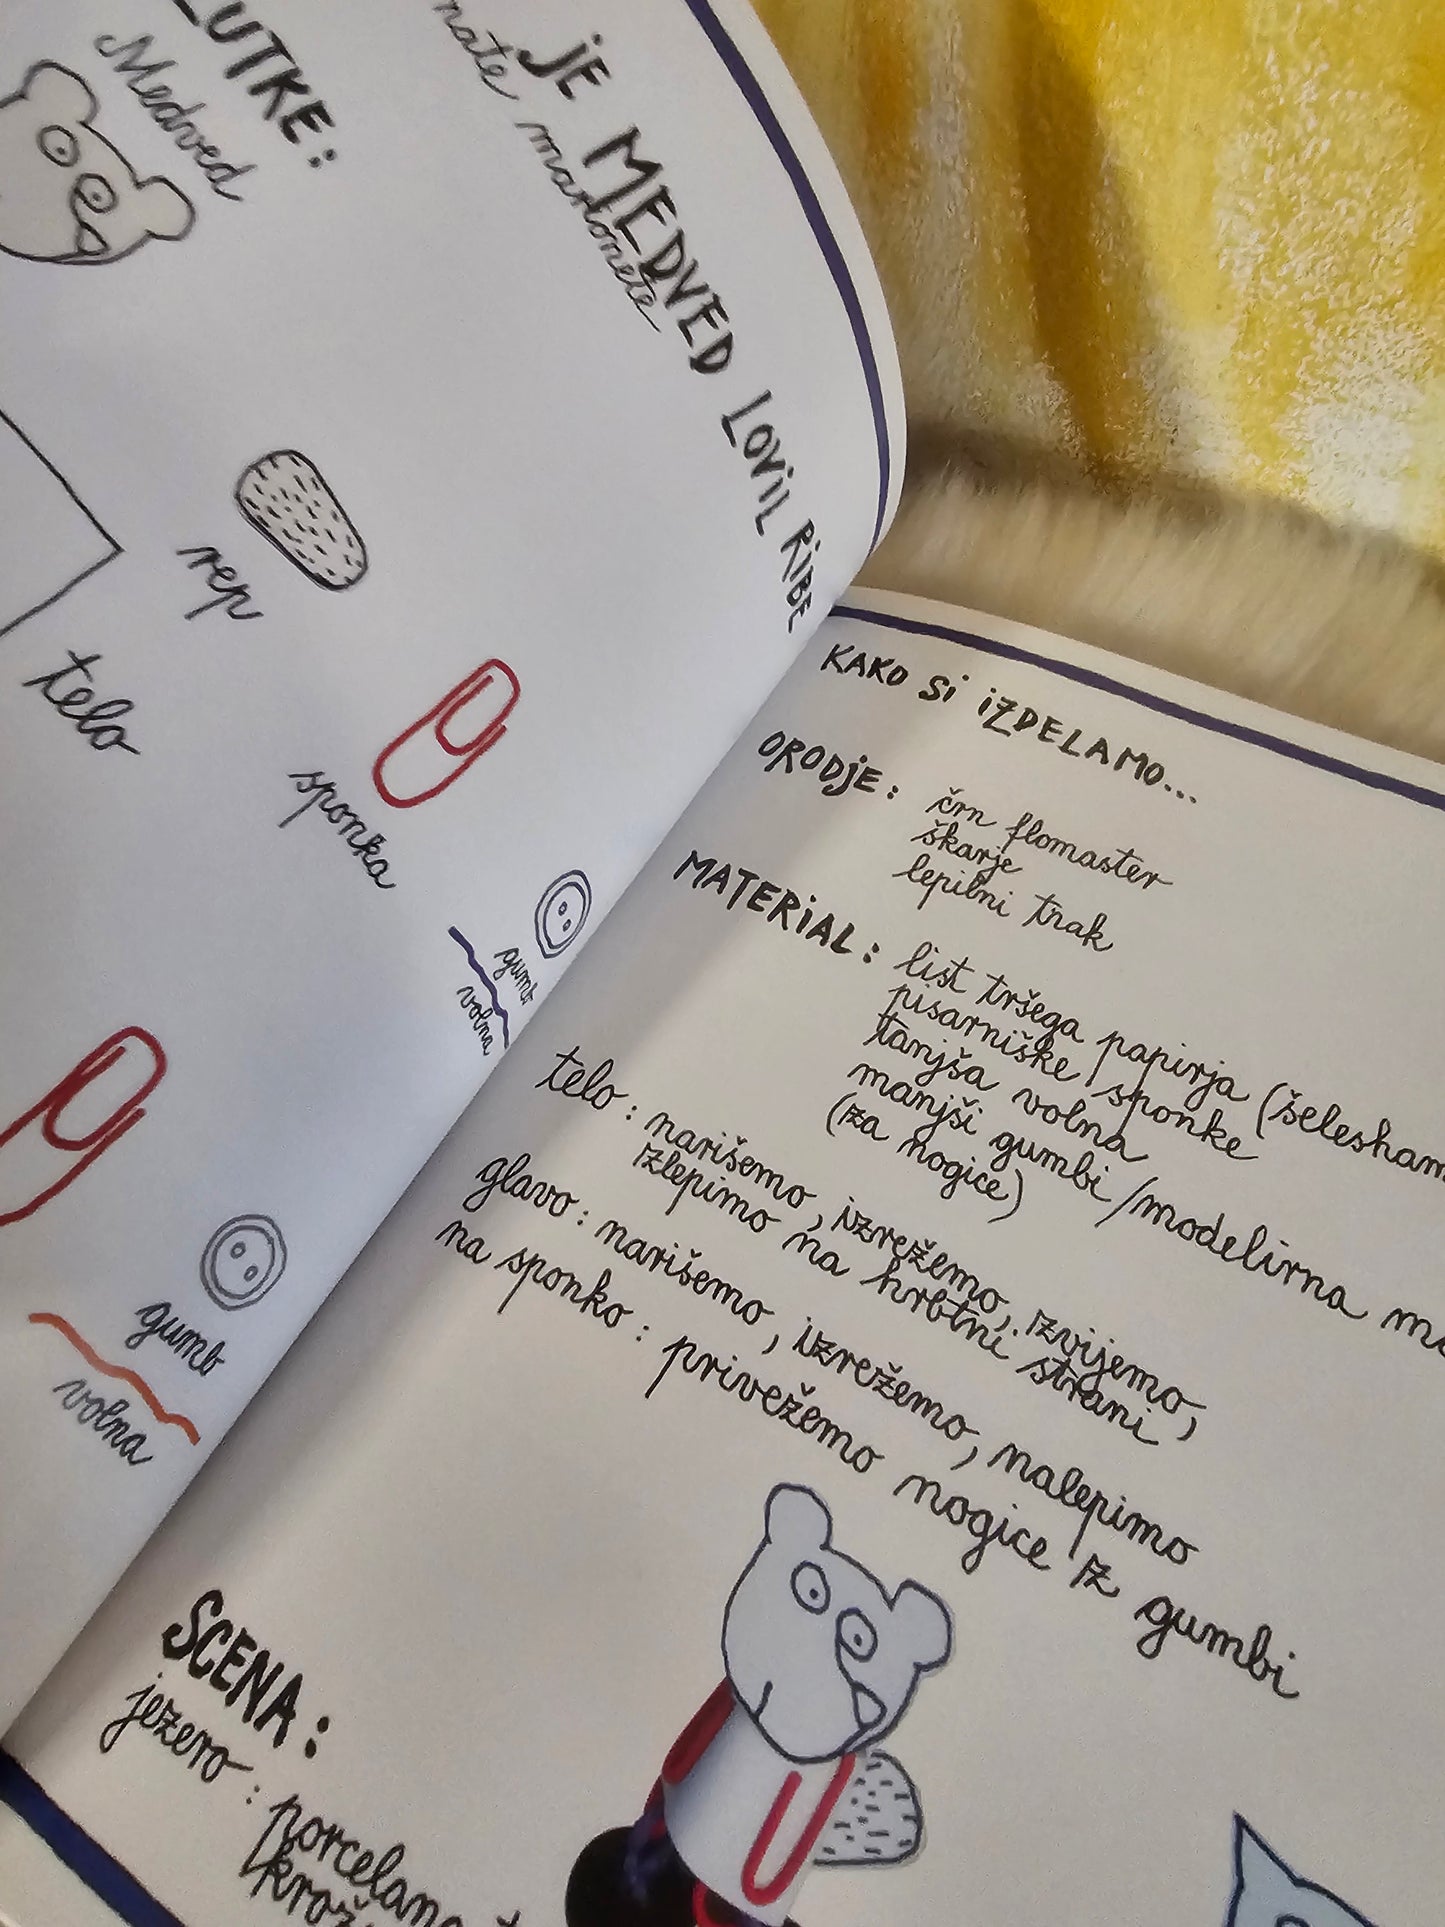 JE MEDVED LOVIL RIBE
marionete
LUTKE:
Medved
rep
telo
sponka
gumb
volna
gumb
volna
KAKO SI IZDELAMO...
ORODJE: črn flomaster
škarje
lepilni trak
MATERIAL: list tršega papirja (šelesham
pisarniške sponke
tanjša volna
manjši gumbi/modelirna ma
(za nogice)
telo: narišemo, izrežemo, izvijemo,
izlepimo na hrbtni strani
glavo: narišemo, izrežemo, nalepimo
na sponko: privežemo nogice iz gumbi
SCENA:
jezero: porcelan
krož